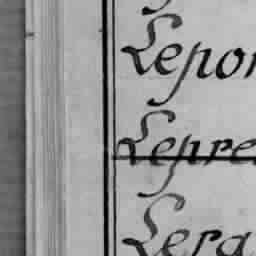 Lepor
Lepre
Lera